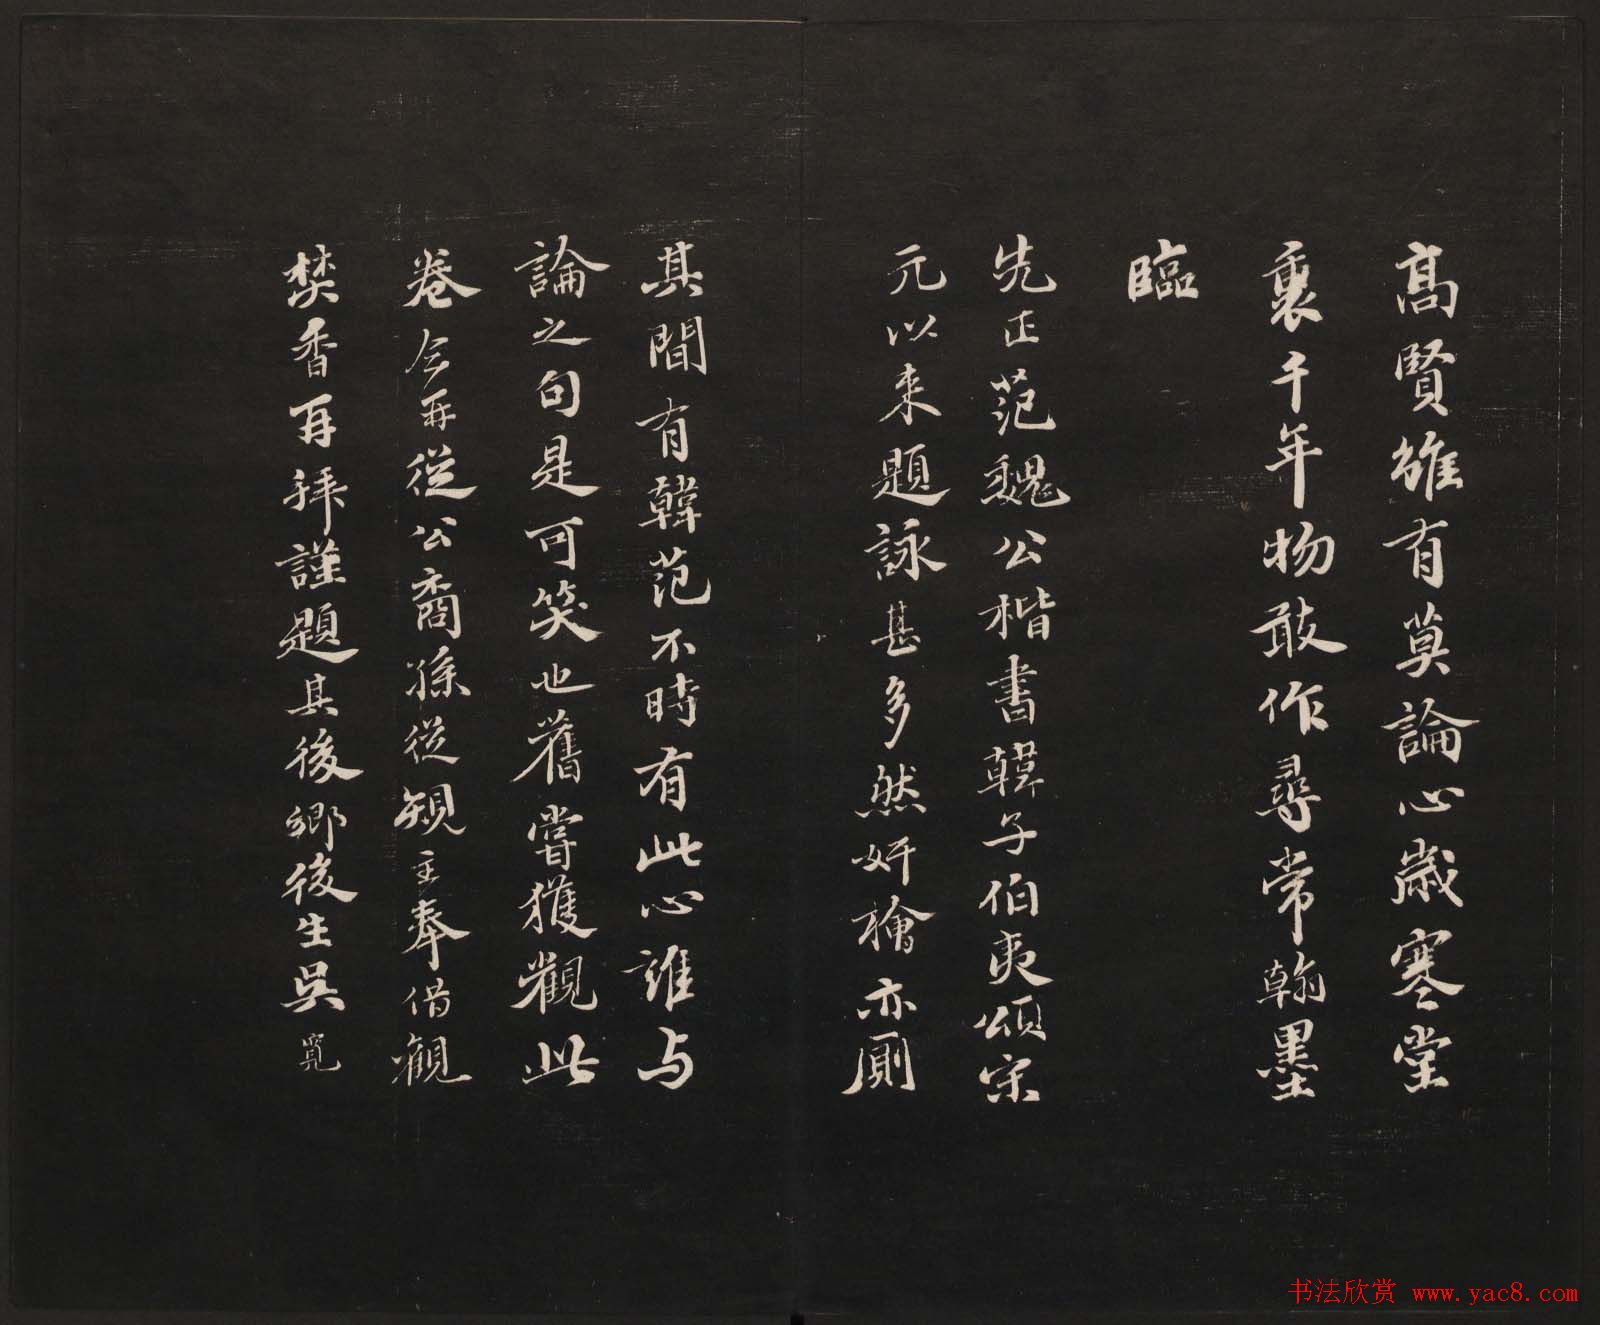 高賢雖有莫論心歲寒堂
裏千年物敢作尋常翰墨
臨
先正范魏公楷書韓子伯夷頌宋
元以来題詠甚多然奸檜亦厠
其間有韓范不時有此心誰与
論之句是可笑也舊嘗獲觀此
卷今再從公裔孫從規主奉借觀
焚香再拜謹題其後鄉後生吳寬
书法欣赏 www.yac8.com